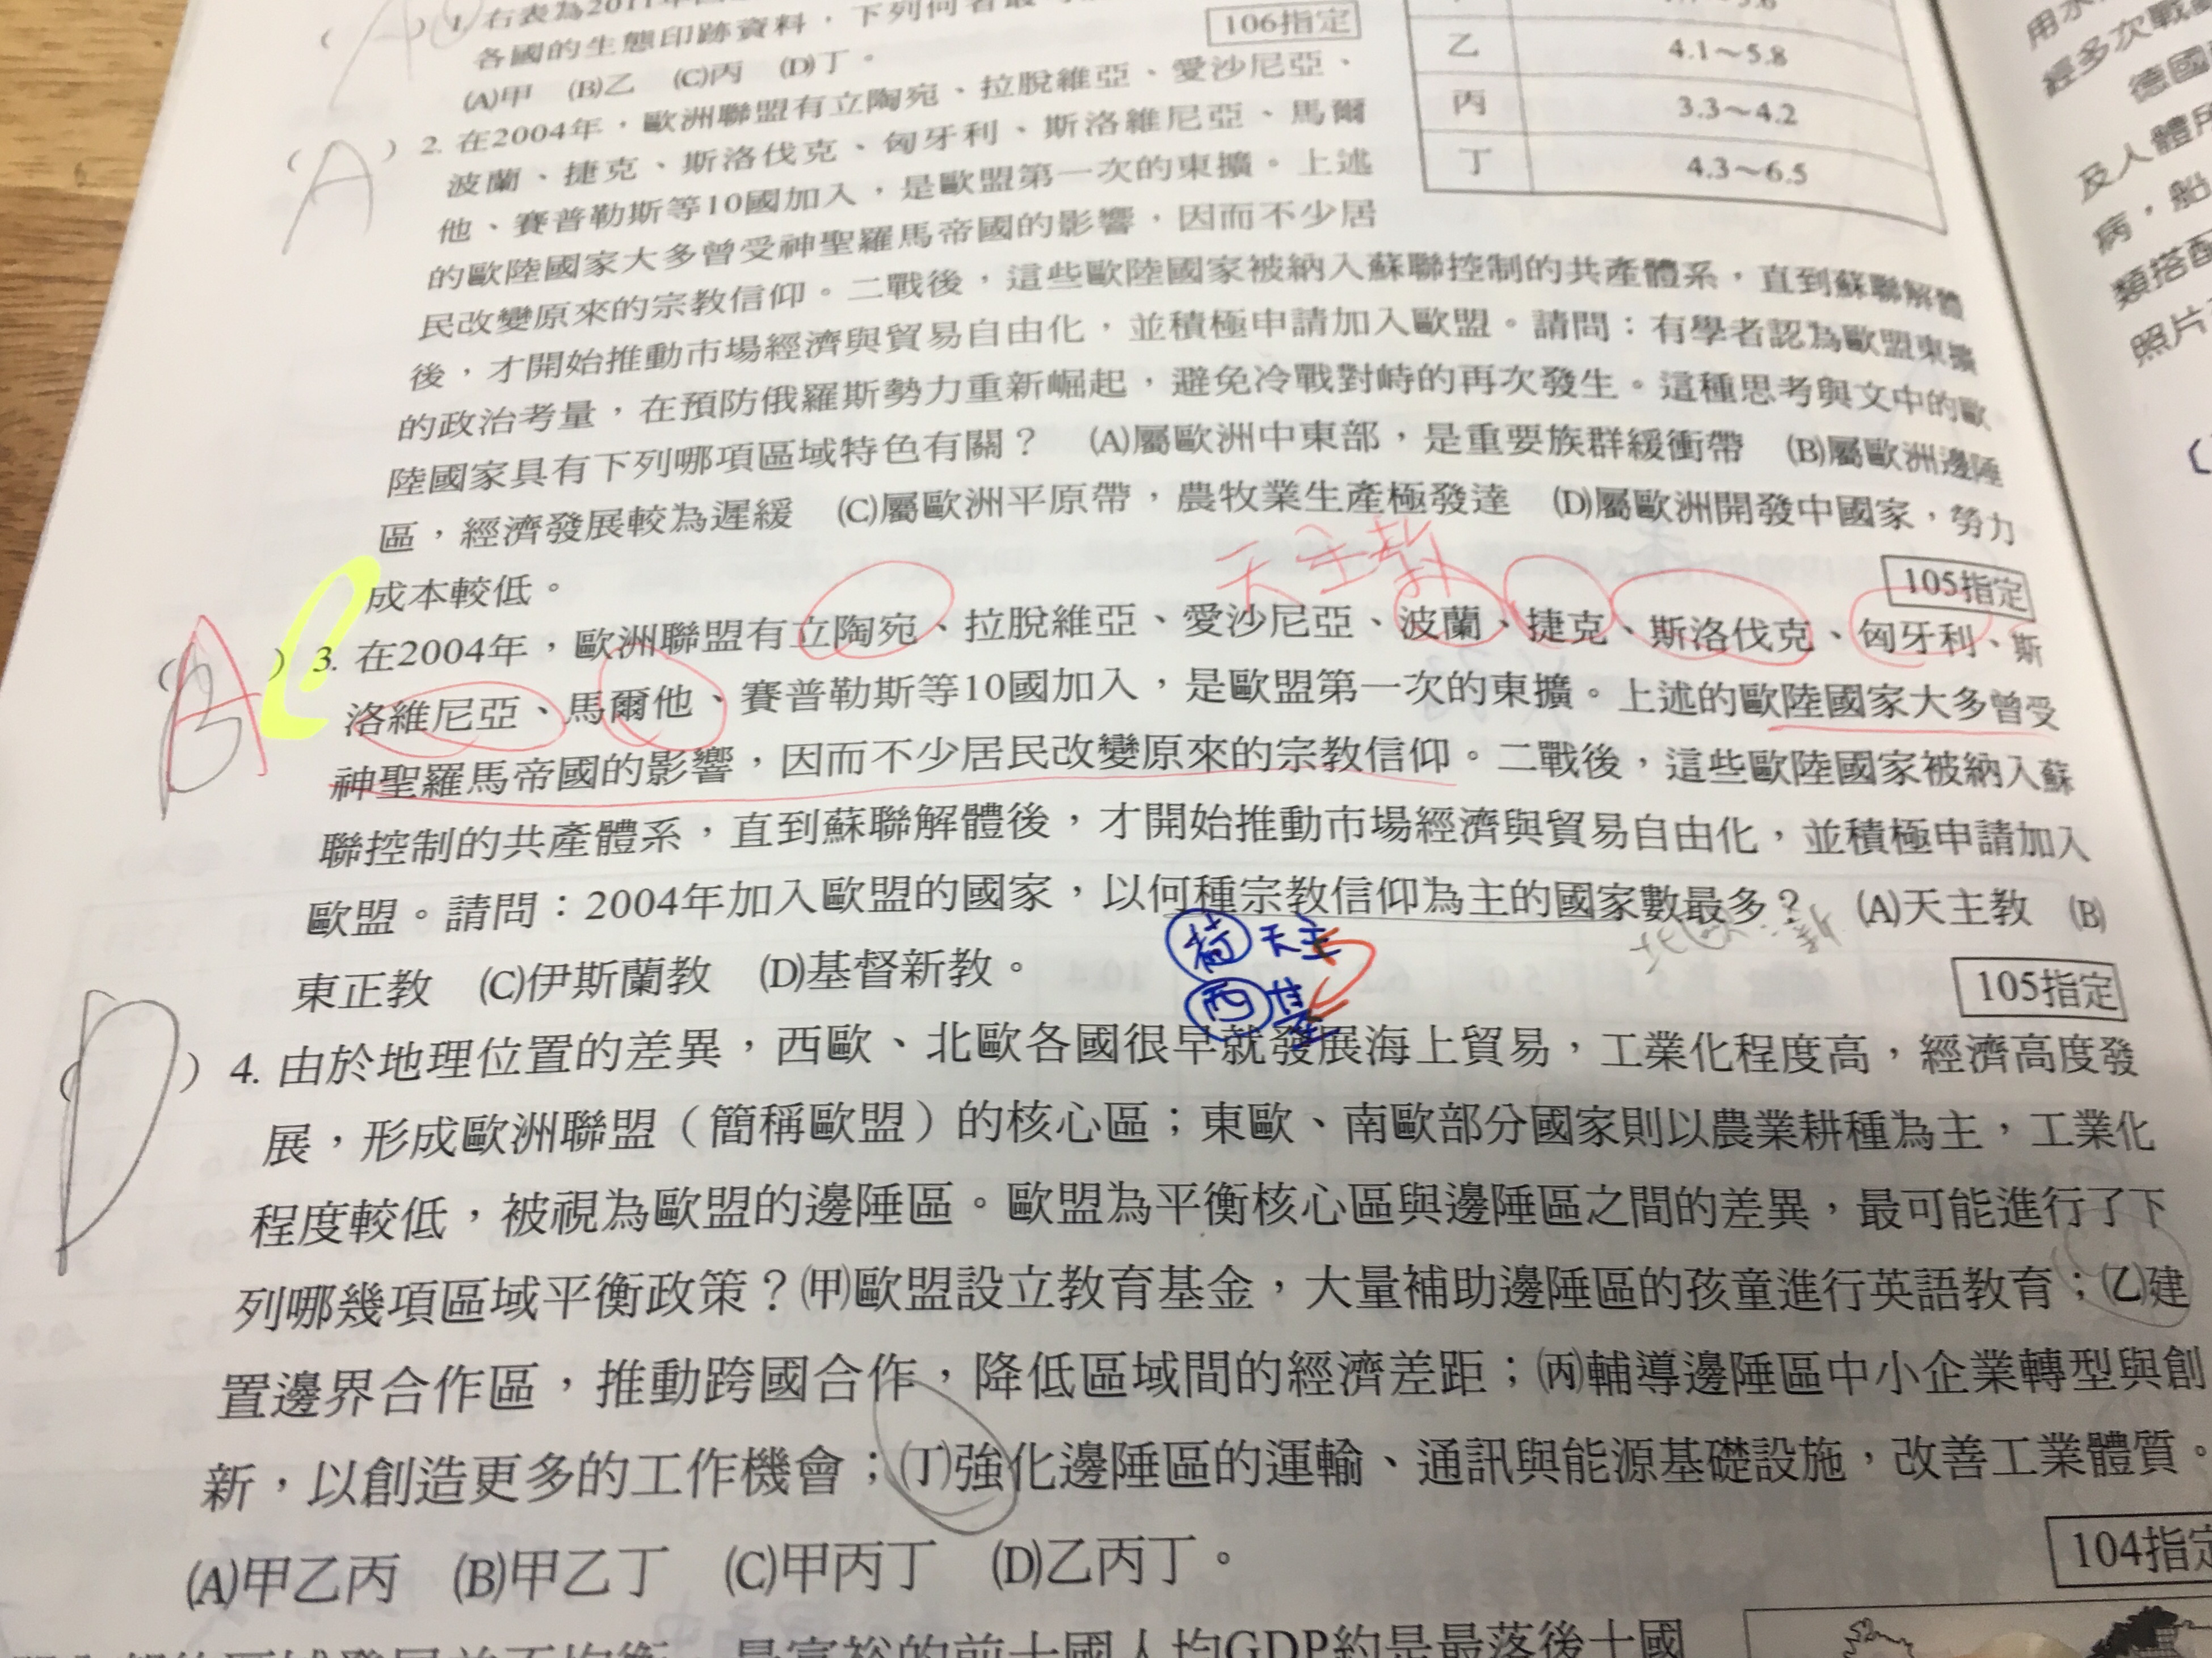 1. 右表為2011年
各國的生態印跡資料，下列何者最
(A)甲 (B)乙 (C)丙 (D)丁。
106指定
乙 4.1～5.8
丙 3.3～4.2
丁 4.3～6.5
A
( ) 2. 在2004年，歐洲聯盟有立陶宛、拉脫維亞、愛沙尼亞、
波蘭、捷克、斯洛伐克、匈牙利、斯洛維尼亞、馬爾
他、賽普勒斯等10國加入，是歐盟第一次的東擴。上述
的歐陸國家大多曾受神聖羅馬帝國的影響，因而不少居
民改變原來的宗教信仰。二戰後，這些歐陸國家被納入蘇聯控制的共產體系，直到蘇聯解體
後，才開始推動市場經濟與貿易自由化，並積極申請加入歐盟。請問：有學者認為歐盟東擴
的政治考量，在預防俄羅斯勢力重新崛起，避免冷戰對峙的再次發生。這種思考與文中的歐
陸國家具有下列哪項區域特色有關？ (A)屬歐洲中東部，是重要族群緩衝帶 (B)屬歐洲邊陲
區，經濟發展較為遲緩 (C)屬歐洲平原帶，農牧業生產極發達 (D)屬歐洲開發中國家，勞力
成本較低。
105指定
天主教
A
B
) 3. 在2004年，歐洲聯盟有立陶宛、拉脫維亞、愛沙尼亞、波蘭、捷克、斯洛伐克、匈牙利、斯
洛維尼亞、馬爾他、賽普勒斯等10國加入，是歐盟第一次的東擴。上述的歐陸國家大多曾受
神聖羅馬帝國的影響，因而不少居民改變原來的宗教信仰。二戰後，這些歐陸國家被納入蘇
聯控制的共產體系，直到蘇聯解體後，才開始推動市場經濟與貿易自由化，並積極申請加入
歐盟。請問：2004年加入歐盟的國家，以何種宗教信仰為主的國家數最多？ (A)天主教 (B)
東正教 (C)伊斯蘭教 (D)基督新教。
北歐：新
荷 天主
西 基
105指定
D
( ) 4. 由於地理位置的差異，西歐、北歐各國很早就發展海上貿易，工業化程度高，經濟高度發
展，形成歐洲聯盟（簡稱歐盟）的核心區；東歐、南歐部分國家則以農業耕種為主，工業化
程度較低，被視為歐盟的邊陲區。歐盟為平衡核心區與邊陲區之間的差異，最可能進行了下
列哪幾項區域平衡政策？(甲)歐盟設立教育基金，大量補助邊陲區的孩童進行英語教育；(乙)建
置邊界合作區，推動跨國合作，降低區域間的經濟差距；(丙)輔導邊陲區中小企業轉型與創
新，以創造更多的工作機會；(丁)強化邊陲區的運輸、通訊與能源基礎設施，改善工業體質。
(A)甲乙丙 (B)甲乙丁 (C)甲丙丁 (D)乙丙丁。
104指定
是富裕的前十國人均GDP約是最落後十國
用水
經多次戰
德國
及人體
病，船
類搭配
照片